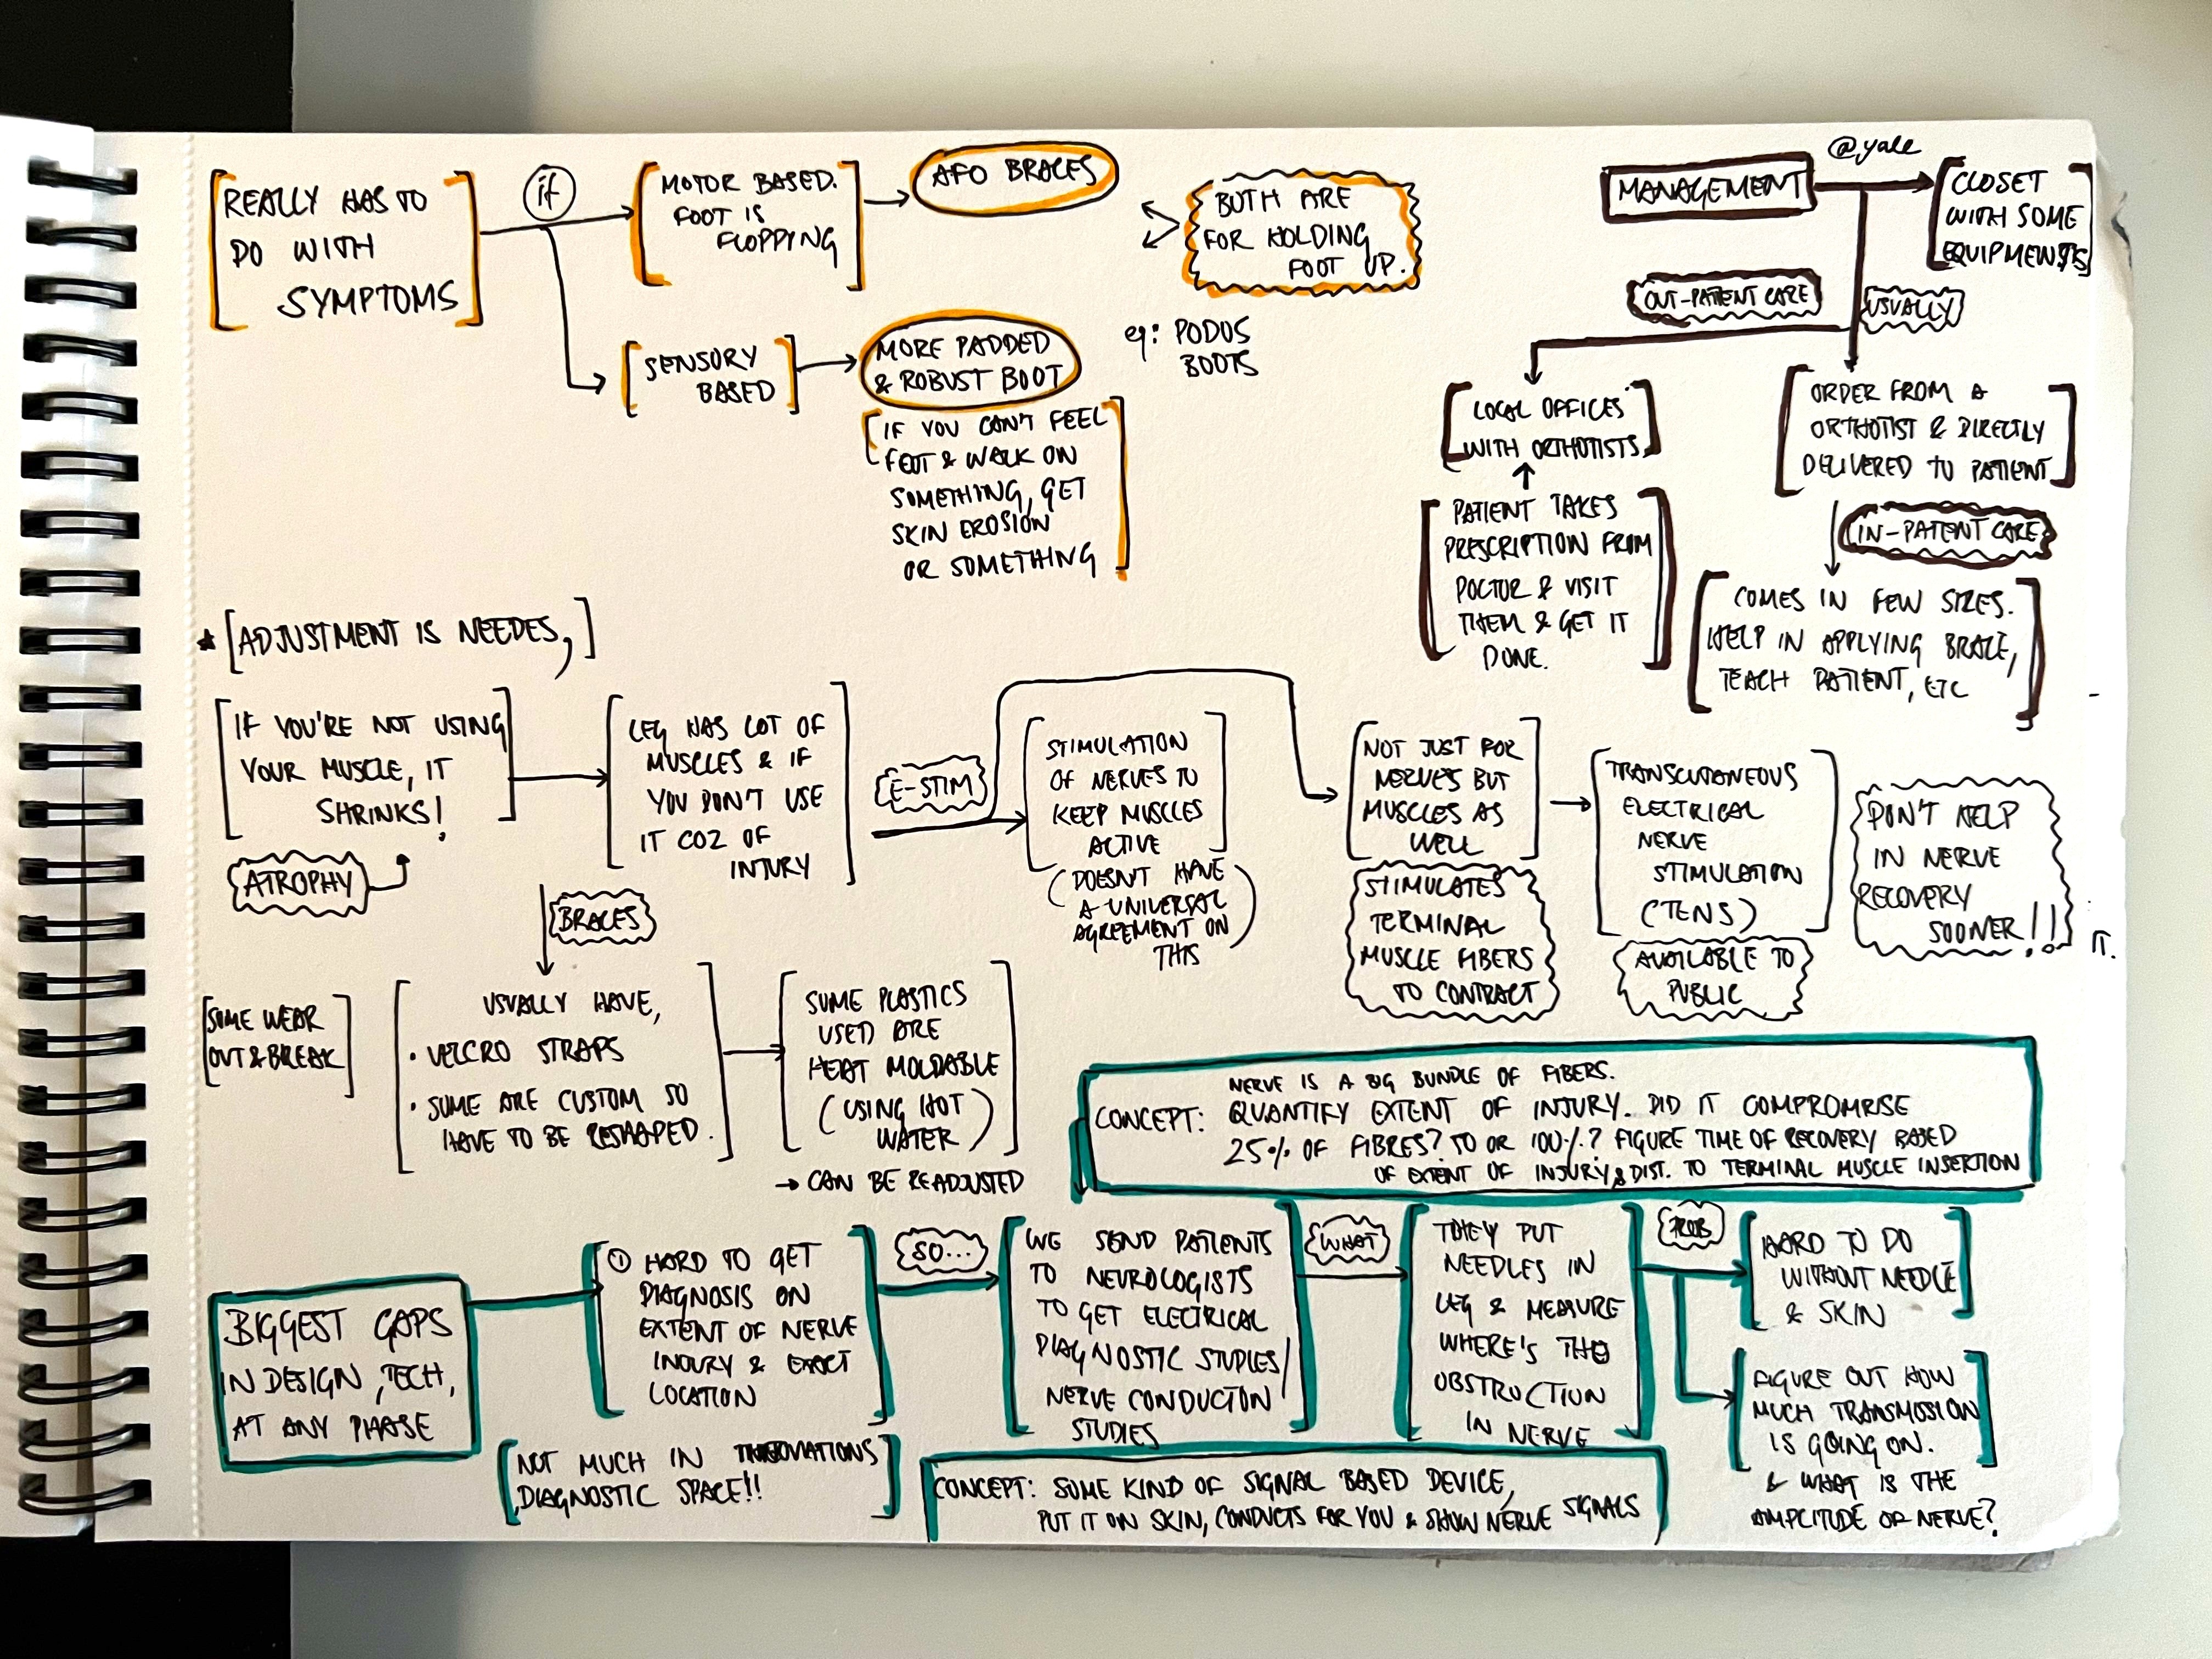 REALLY HAS TO
DO WITH
SYMPTOMS
if
MOTOR BASED.
FOOT IS
FLOPPYNG
AFO BRACES
BOTH ARE
FOR HOLDING
FOOT UP.
SENSORY
BASED
MORE PADDED
& ROBUST BOOT
eg: PODUS
BOOTS
IF YOU CAN'T FEEL
FEET & WALK ON
SOMETHING, GET
SKIN EROSION
OR SOMETHING
MANAGEMENT
@yale
CLOSET
WITH SOME
EQUIPMENTS
OUT-PATIENT CARE
USUALLY
LOCAL OFFICES
WITH ORTHOTISTS
PATIENT TAKES
PRESCRIPTION FROM
DOCTOR & VISIT
THEM & GET IT
DONE.
ORDER FROM A
ORTHOTIST & DIRECTLY
DELIVERED TO PATIENT
IN-PATIENT CARE
COMES IN FEW SIZES.
HELP IN APPLYING BRACE,
TEACH PATIENT, ETC
* [ADJUSTMENT IS NEEDES,]
IF YOU'RE NOT USING
YOUR MUSCLE, IT
SHRINKS!
ATROPHY
LEG HAS LOT OF
MUSCLES & IF
YOU DON'T USE
IT COZ OF
INJURY
E-STIM
STIMULATION
OF NERVES TO
KEEP MUSCLES
ACTIVE
(DOESN'T HAVE
A UNIVERSAL
AGREEMENT ON
THIS)
NOT JUST FOR
NERVES BUT
MUSCLES AS
WELL
STIMULATES
TERMINAL
MUSCLE FIBERS
TO CONTRACT
TRANSCUTANEOUS
ELECTRICAL
NERVE
STIMULATION
(TENS)
AVAILABLE TO
PUBLIC
DON'T HELP
IN NERVE
RECOVERY
SOONER!!
IT.
BRACES
SOME WEAR
OUT & BREAK
USUALLY HAVE,
• VELCRO STRAPS
• SOME ARE CUSTOM SO
HAVE TO BE RESHAPED.
SOME PLASTICS
USED ARE
HEAT MOLDABLE
(USING HOT
WATER)
→ CAN BE READJUSTED
NERVE IS A BIG BUNDLE OF FIBERS.
CONCEPT: QUANTIFY EXTENT OF INJURY. DID IT COMPROMRISE
25% OF FIBRES? TO OR 100%? FIGURE TIME OF RECOVERY BASED
OF EXTENT OF INJURY & DIST. TO TERMINAL MUSCLE INSERTION
BIGGEST GAPS
IN DESIGN, TECH,
AT ANY PHASE
① HARD TO GET
DIAGNOSIS ON
EXTENT OF NERVE
INJURY & EXACT
LOCATION
NOT MUCH IN INNOVATIONS
DIAGNOSTIC SPACE!!
SO...
WE SEND PATIENTS
TO NEUROLOGISTS
TO GET ELECTRICAL
DIAGNOSTIC STUDIES/
NERVE CONDUCTION
STUDIES
WHAT
THEY PUT
NEEDLES IN
LEG & MEASURE
WHERE'S THE
OBSTRUCTION
IN NERVE
PROB
HARD TO DO
WITHOUT NEEDLE
& SKIN
FIGURE OUT HOW
MUCH TRANSMISSION
IS GOING ON.
& WHAT IS THE
AMPLITUDE OF NERVE?
CONCEPT: SOME KIND OF SIGNAL BASED DEVICE,
PUT IT ON SKIN, CONDUCTS FOR YOU & SHOW NERVE SIGNALS